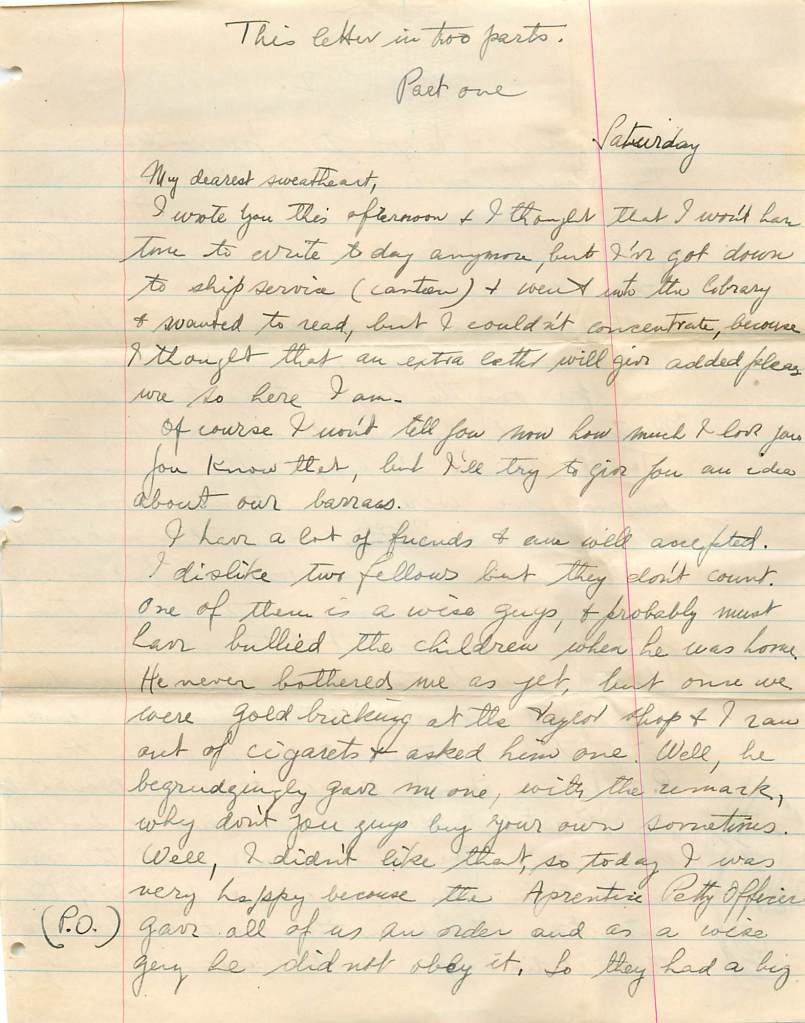 This letter in two parts.
Part one
Saturday
My dearest sweatheart,
I wrote you this afternoon & I thought that I won't have
time to write today anymore, but I've got down
to ship service (canteen) & went into the library
& wanted to read, but I couldn't concentrate, because
I thought that an extra letter will give added pleas
ure so here I am.
Of course I won't tell you now how much I love you
you know that, but I'll try to give you an idea
about our barracs.
I have a lot of friends & am well accepted.
I dislike two fellows but they don't count.
One of them is a wise guys, & probably must
have bullied the children when he was home.
He never bothered me as yet, but once we
were goldbricking at the Taylor shop & I ran
out of cigarets & asked him one. Well, he
begrudgingly gave me one, with the remark,
why don't you guys buy your own sometimes.
Well, I didn't like that, so today I was
very happy because the Aprentice Petty Officer
(P.O.) gave all of us an order and as a wise
guy he did not obey it. So they had a big